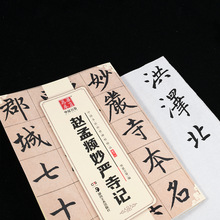 洪澤北
妙嚴寺本名
郡城七十
赵孟頫妙严寺记